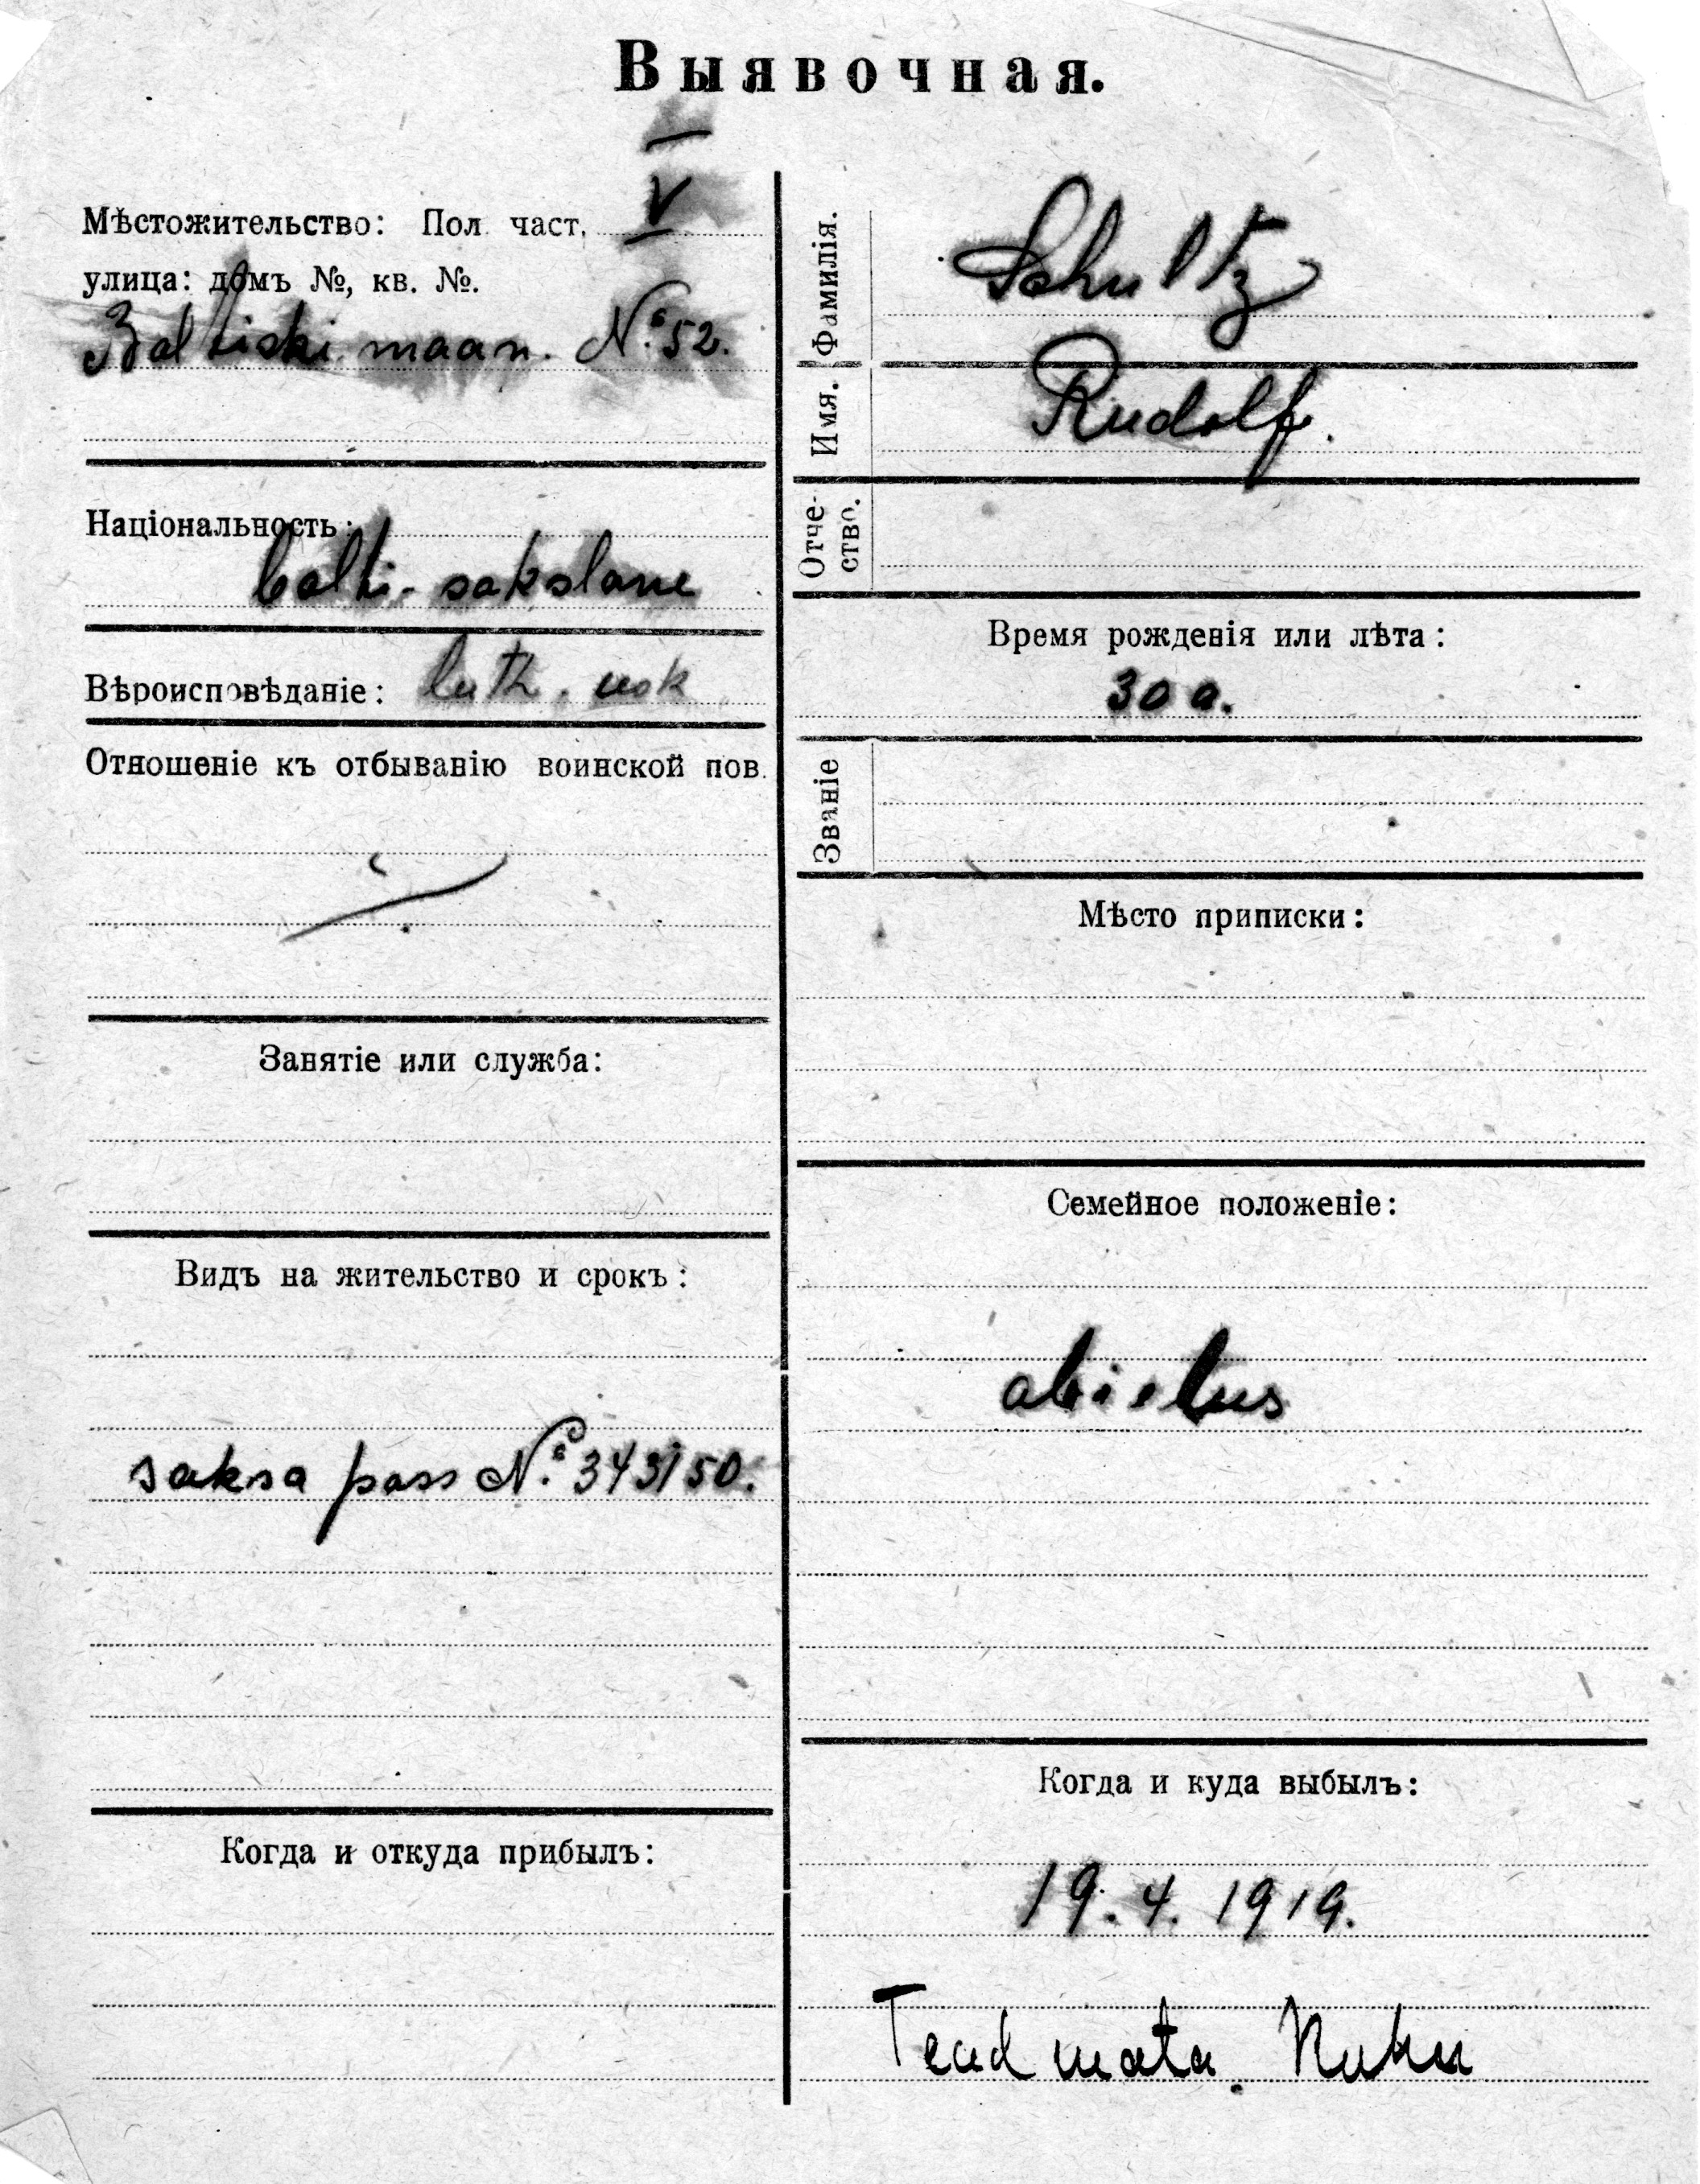 Выявочная.
Мѣстожительство: Пол. част. V
улица: домъ №, кв. №.
Baltiski maan. № 52.
Національность:
balti-sakslane
Вѣроисповѣданіе: luth. usk
Отношеніе къ отбыванію воинской пов.
Занятіе или служба:
Видъ на жительство и срокъ:
saksa pass № 343150.
Когда и откуда прибылъ:
Фамилія. Schultz
Имя. Rudolf.
Отче-
ство.
Время рожденія или лѣта:
30 a.
Званіе
Мѣсто приписки:
Семейное положеніе:
abielus
Когда и куда выбылъ:
19. 4. 1919.
Tead mata